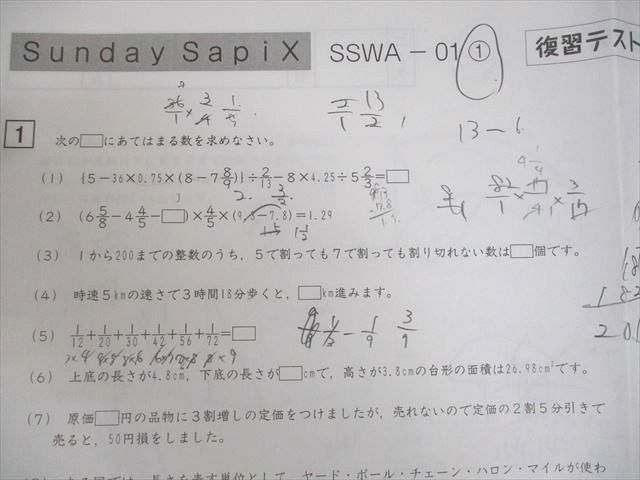 Sunday SapiX SSWA－01① 復習テスト
1 次の□にあてはまる数を求めなさい。
(1) {5－36×0.75×(8－7 8/9)}÷2/13－8×4.25÷5 2/3＝□
(2) (6 5/8－4 4/5－□)×4/5×(9.3－7.8)＝1.29
(3) 1から200までの整数のうち，5で割っても7で割っても割り切れない数は□個です。
(4) 時速5kmの速さで3時間18分歩くと，□km進みます。
(5) 1/12＋1/20＋1/30＋1/42＋1/56＋1/72＝□
(6) 上底の長さが4.8cm，下底の長さが□cmで，高さが3.8cmの台形の面積は26.98cm²です。
(7) 原価□円の品物に3割増しの定価をつけましたが，売れないので定価の2割5分引きで
売ると，50円損をしました。
ヤード・ポール・チェーン・ハロン・マイルが使わ
13－6
1/3－1/9 3/9